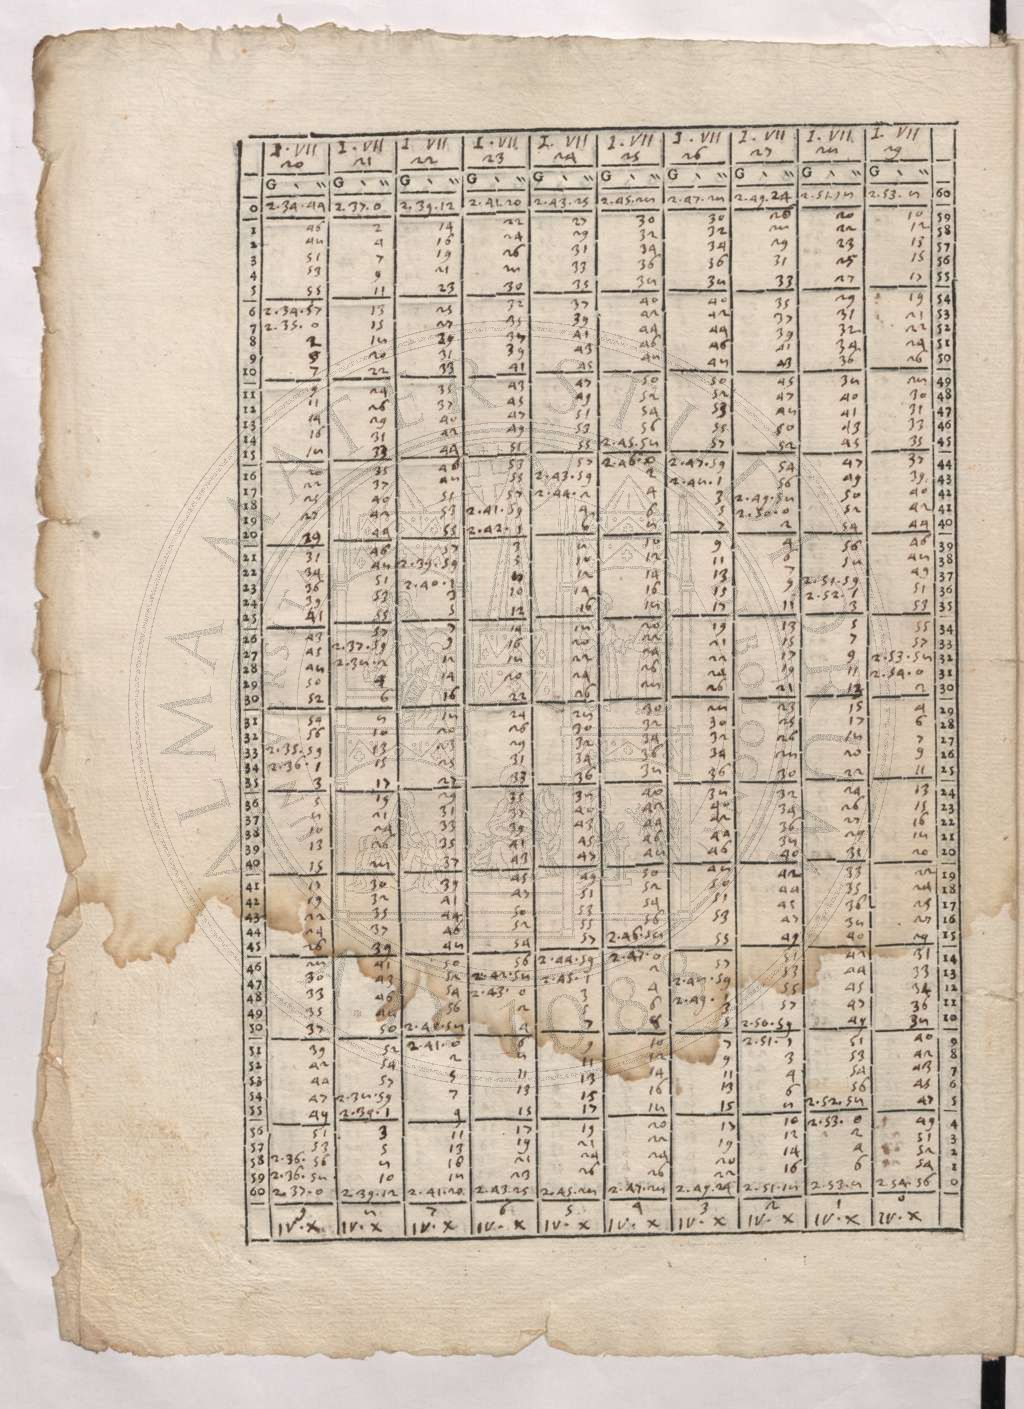 I·VII I·VII I VII I·VII I. VII I·VII I·VII I· VII I·VII I VII
20 21 22 23 24 25 26 27 28 29
G ‵ ‶ G ‵ ‶ G ‵ ‶ G ‵ ‶ G ‵ ‶ G ‵ ‶ G ‵ ‶ G ‵ ‶ G ‵ ‶ G ‵ ‶
0 2·34·44 2·37·0 2·39·12 2·41·20 2·43·25 2·45·28 2·47·28 2·49·24 2·51·18 2·53·8 60
1 46 2 14 22 27 30 30 26 20 10 59
2 48 4 16 24 29 32 32 28 22 12 58
3 51 7 19 26 31 34 34 29 23 13 57
4 53 9 21 28 33 36 36 31 25 15 56
5 55 11 23 30 35 38 38 33 27 17 55
6 2·34·57 13 25 32 37 40 40 35 29 19 54
7 2·35·0 15 27 35 39 42 42 37 31 21 53
8 2 18 29 37 41 44 44 39 32 22 52
9 5 20 31 39 43 46 46 41 34 24 51
10 7 22 33 41 45 48 48 43 36 26 50
11 9 24 35 43 47 50 50 45 38 28 49
12 11 26 37 45 49 52 52 47 40 30 48
13 14 29 40 47 51 54 53 48 41 31 47
14 16 31 42 49 53 56 55 50 43 33 46
15 18 33 44 51 55 2·45·58 57 52 45 35 45
16 20 35 46 53 57 2·46·0 2·47·59 54 47 37 44
17 22 37 48 55 2·43·59 2 2·48·1 56 49 39 43
18 25 40 51 57 2·44·2 4 3 2·49·58 50 40 42
19 27 42 53 2·41·59 4 6 5 2·50·0 52 42 41
20 29 44 55 2·42·1 6 8 7 2 54 44 40
21 31 46 57 3 8 10 9 4 56 46 39
22 34 48 2·39·59 5 10 12 11 6 58 48 38
23 36 51 2·40·1 8 12 14 13 7 2·51·59 49 37
24 39 53 3 10 14 16 15 9 2·52·1 51 36
25 41 55 5 12 16 18 17 11 3 53 35
26 43 57 7 14 18 20 19 13 5 55 34
27 45 2·37·59 9 16 20 22 21 15 7 57 33
28 48 2·38·2 12 18 22 24 22 17 9 2·53·58 32
29 50 4 14 20 24 26 24 19 11 2·54·0 31
30 52 6 16 22 26 28 26 21 13 2 30
31 54 8 18 24 28 30 28 23 15 4 29
32 56 10 20 26 30 32 30 25 17 6 28
33 2·35·59 13 23 29 32 34 32 26 18 7 27
34 2·36·1 15 25 31 34 36 34 28 20 9 26
35 3 17 27 33 36 38 36 30 22 11 25
36 5 19 29 35 38 40 38 32 24 13 24
37 8 21 31 37 40 42 40 34 26 15 23
38 10 24 33 39 43 44 42 36 27 16 22
39 13 26 35 41 45 46 44 38 29 18 21
40 15 28 37 43 47 48 46 40 31 20 20
41 17 30 39 45 49 50 48 42 33 22 19
42 19 32 41 47 51 52 50 44 35 24 18
43 22 35 44 50 53 54 51 45 36 25 17
44 24 37 46 52 55 56 53 47 38 27 16
45 26 39 48 54 57 2·46·58 55 49 40 29 15
46 28 41 50 56 2·44·59 2·47·0 57 51 42 31 14
47 30 43 52 2·42·58 2·45·1 2 2·48·59 53 44 33 13
48 33 46 54 2·43·0 3 4 2·49·1 55 45 34 12
49 35 48 56 2 5 6 3 57 47 36 11
50 37 50 2·40·58 4 7 8 5 2·50·59 49 38 10
51 39 52 2·41·0 6 9 10 7 2·51·1 51 40 9
52 42 54 2 8 11 12 9 3 53 42 8
53 44 57 5 11 13 14 11 4 54 43 7
54 47 2·38·59 7 13 15 16 13 6 56 45 6
55 49 2·39·1 9 15 17 18 15 8 2·52·58 47 5
56 51 3 11 17 19 20 17 10 2·53·0 49 4
57 53 5 13 19 21 22 19 12 2 51 3
58 2·36·56 8 16 21 24 24 20 14 4 52 2
59 2·36·58 10 18 23 26 26 22 16 6 54 1
60 2·37·0 2·39·12 2·41·20 2·43·25 2·45·28 2·47·28 2·49·24 2·51·18 2·53·8 2·54·56 0
9 8 7 6 5 4 3 2 1 0
IV·X IV·X IV·X IV·X IV·X IV·X IV·X IV·X IV·X IV·X